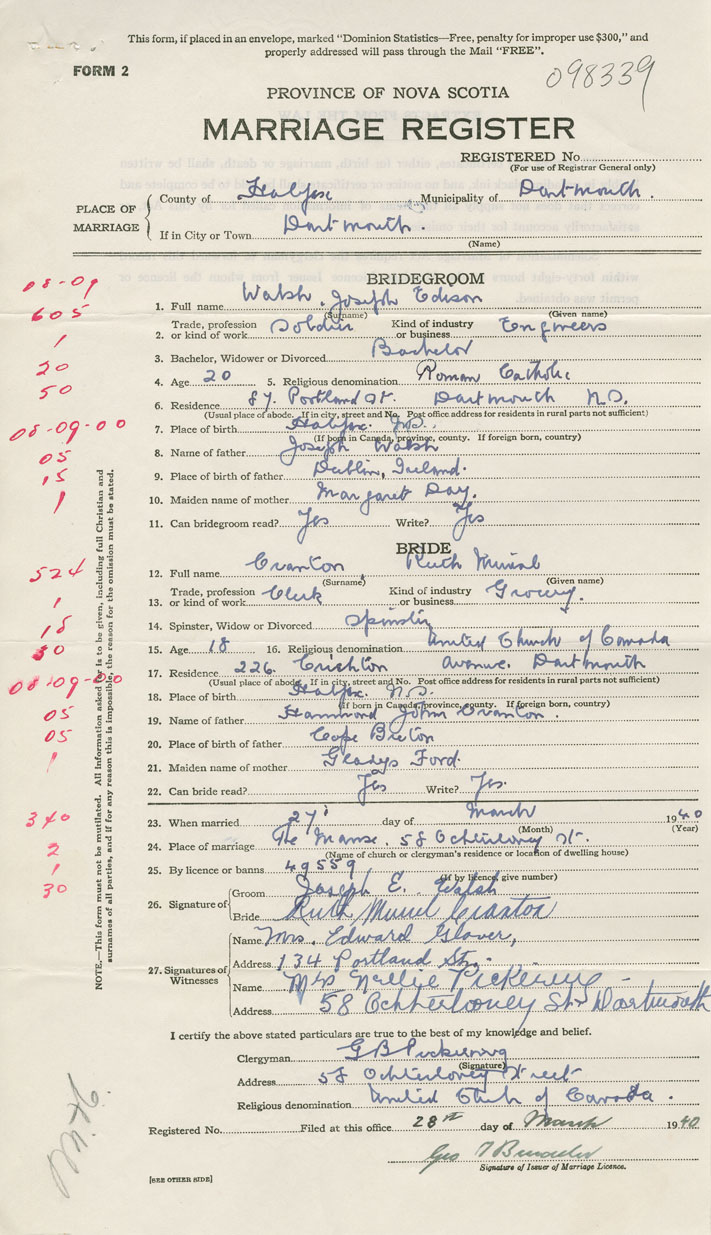 This form, if placed in an envelope, marked "Dominion Statistics—Free, penalty for improper use $300," and
properly addressed will pass through the Mail "FREE".
FORM 2
098339
PROVINCE OF NOVA SCOTIA
MARRIAGE REGISTER
REGISTERED No.
(For use of Registrar General only)
PLACE OF MARRIAGE
County of Halifax Municipality of Dartmouth.
If in City or Town Dartmouth.
(Name)
BRIDEGROOM
08-09
1. Full name Walsh, Joseph Edison
(Surname) (Given name)
605
2. Trade, profession or kind of work Soldier Kind of industry or business Engineers
1
3. Bachelor, Widower or Divorced Bachelor
20
4. Age 20 5. Religious denomination Roman Catholic
50
6. Residence 87 Portland St. Dartmouth N.S.
(Usual place of abode. If in city, street and No. Post office address for residents in rural parts not sufficient)
08-09-00
7. Place of birth Halifax. N.S.
(If born in Canada, province, county. If foreign born, country)
05
8. Name of father Joseph Walsh
15
9. Place of birth of father Dublin, Ireland.
1
10. Maiden name of mother Margaret Day.
11. Can bridegroom read? Yes Write? Yes
BRIDE
524
12. Full name Cranton, Ruth Muriel
(Surname) (Given name)
1
13. Trade, profession or kind of work Clerk Kind of industry or business Grocery.
18
14. Spinster, Widow or Divorced Spinster
30
15. Age 18 16. Religious denomination United Church of Canada
17. Residence 226 Crichton Avenue. Dartmouth
(Usual place of abode. If in city, street and No. Post office address for residents in rural parts not sufficient)
08-09-00
18. Place of birth Halifax. N.S.
(If born in Canada, province, county. If foreign born, country)
05
19. Name of father Hammond John Cranton.
05
20. Place of birth of father Cape Breton
1
21. Maiden name of mother Gladys Ford.
22. Can bride read? Yes Write? Yes.
340
23. When married 27 day of March 1940
(Month) (Year)
2
24. Place of marriage The Manse. 58 Ochterloney St.
(Name of church or clergyman's residence or location of dwelling house)
1
25. By licence or banns 49559
(If by licence, give number)
30
26. Signature of
Groom Joseph E. Walsh
Bride Ruth Muriel Cranton
27. Signatures of Witnesses
Name Mrs. Edward Glover,
Address 134 Portland St.,
Name Mrs Nellie Pickering
Address 58 Ochterloney St. Dartmouth
NOTE.—This form must not be mutilated. All information asked for is to be given, including full Christian and
surnames of all parties, and if for any reason this is impossible, the reason for the omission must be stated.
I certify the above stated particulars are true to the best of my knowledge and belief.
Clergyman G B Pickering
(Signature)
Address 58 Ochterloney Street
Religious denomination United Church of Canada.
Registered No. Filed at this office 28th day of March 1940
Signature of Issuer of Marriage Licence.
[SEE OTHER SIDE]